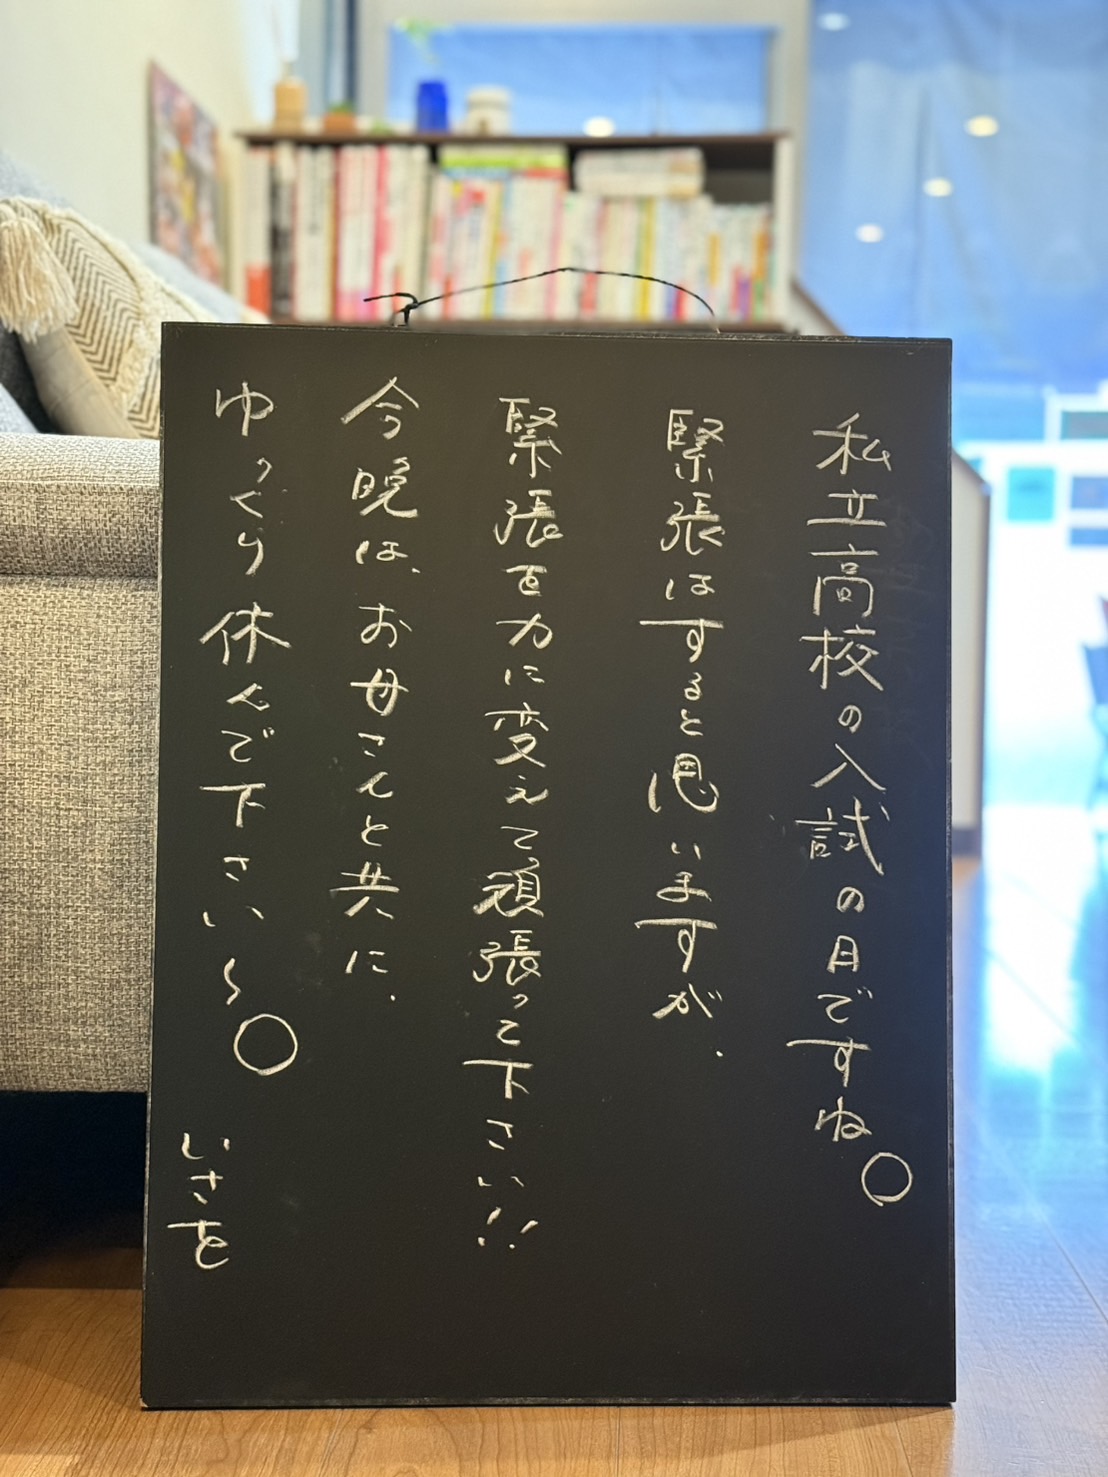 私立高校の入試の日ですね。
緊張はすると思いますが、
緊張を力に変えて頑張って下さい!!
今晩は、お母さんと共に、
ゆっくり休んで下さい〜。
いさを